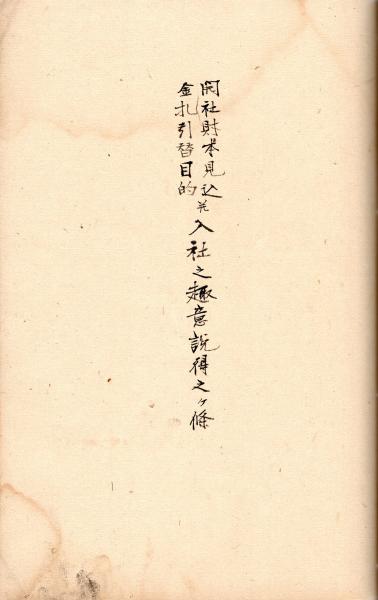 開社財本見込
金札引替目的
并入社之趣意説得之ヶ條